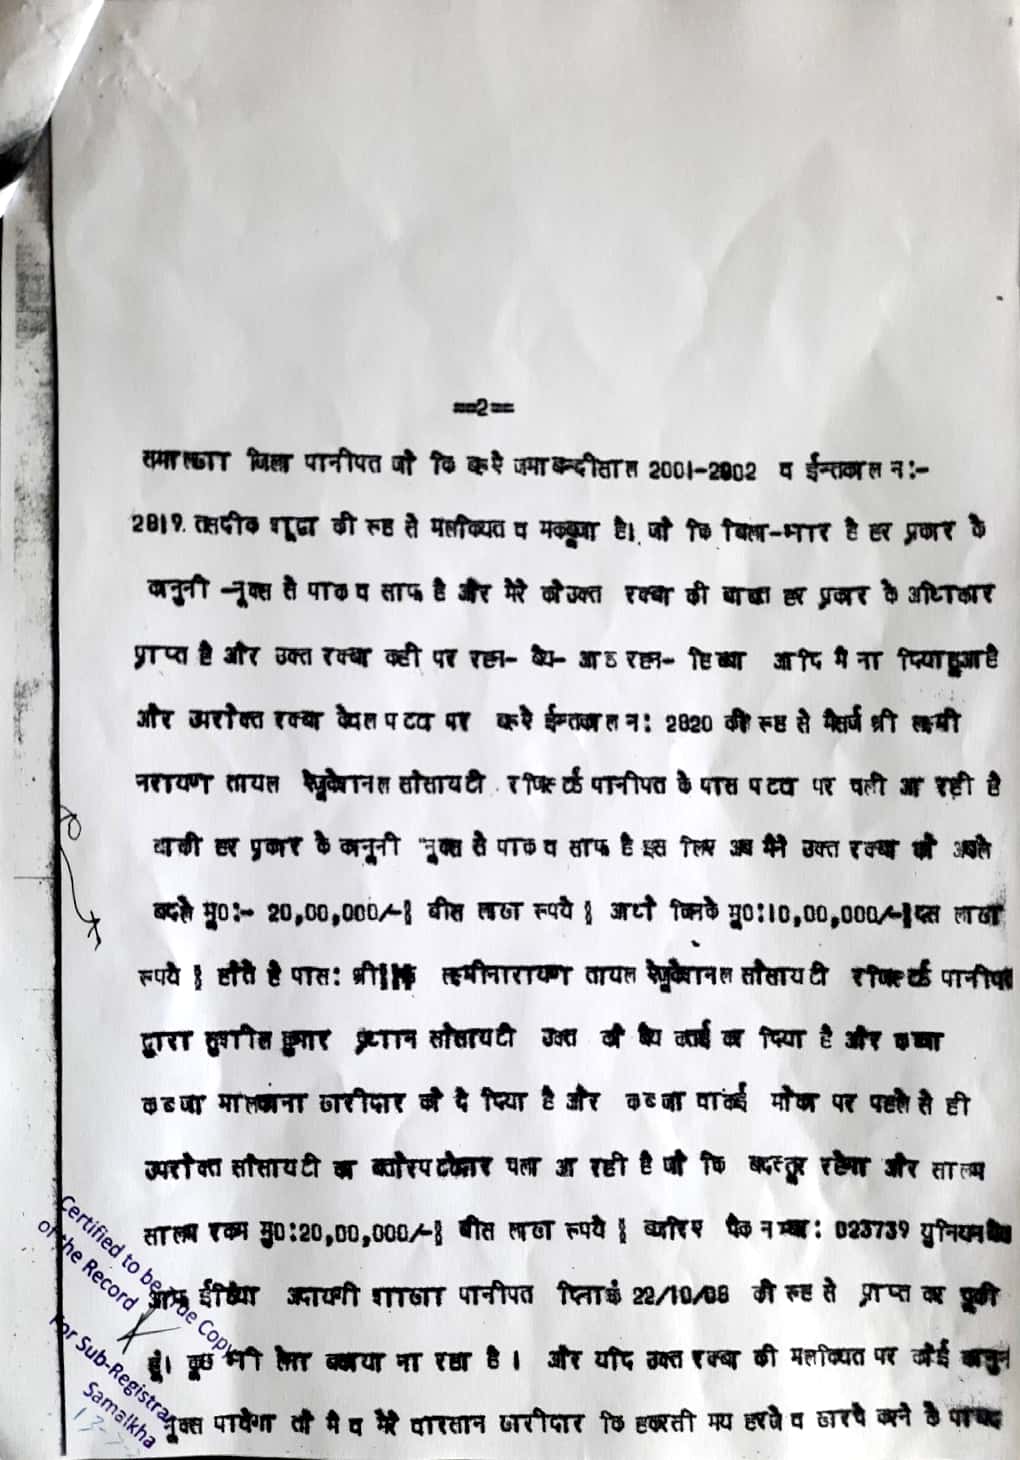 ==2==
समालखा जिला पानीपत जो कि बरूऐ जमाबन्दीसाल 2001-2002 व ईन्तकाल न:-
2819. तसदीक शूदा की रूह से मलकियत व मकबूजा है। जो कि बिला-भार है हर प्रकार के
कानुनी -नूक्स से पाक व साफ है और मेरे को उक्त रक्बा की बाबत हर प्रकार के अधिकार
प्राप्त है और उक्त रक्बा कही पर रहन- बैय- आड रहन- हिब्बा आदि मै ना दिया हूआ है
और उपरोक्त रक्बा केवल पटटा पर बरूऐ ईन्तकाल न: 2820 की रूह से मैसर्ज श्री लक्ष्मी
नरायण तायल ऐजूकेशनल सोसायटी रजिस्टर्ड पानीपत के पास पटटा पर चली आ रही है
बाकी हर प्रकार के कानूनी नूक्स से पाक व साफ है इस लिए अब मैने उक्त रक्बा को
बदले मू0:- 20,00,000/-{ बीस लाख रूपये } आधे जिनके मू0:10,00,000/-{दस लाख
रूपये } होते है पास: श्री लक्ष्मीनारायण तायल ऐजूकेशनल सोसायटी रजिस्टर्ड पानीपत
द्वारा सुशील कुमार प्रधान सोसायटी उक्त को बैय कतई कर दिया है और कब्जा
कब्जा मालकाना खरीदार को दे दिया है और कब्जा वाकई मोका पर पहले से ही
उपरोक्त सोसायटी का बतोर पटटेदार चला आ रही है जो कि बदस्तूर रहेगा और सालम
सालम रकम मु0:20,00,000/-{ बीस लाख रूपये } बजरिए चैक नम्बर: 023739 युनियन बैंक
आफ ईंडिया अदायगी शाखा पानीपत दिनांक 22/10/08 की रूह से प्राप्त कर चूकी
हूं। कूछ भी लेना बकाया ना रहा है। और यदि उक्त रक्बा की मलकियत पर कोई कानुनी
नूक्स पावेगा तो मै व मेरे वारसान खरीदार कि हकरसी मय हरजे व खरचे करने के पाबन्द
Certified to be true Copy
of the Record
For Sub-Registrar
Samalkha